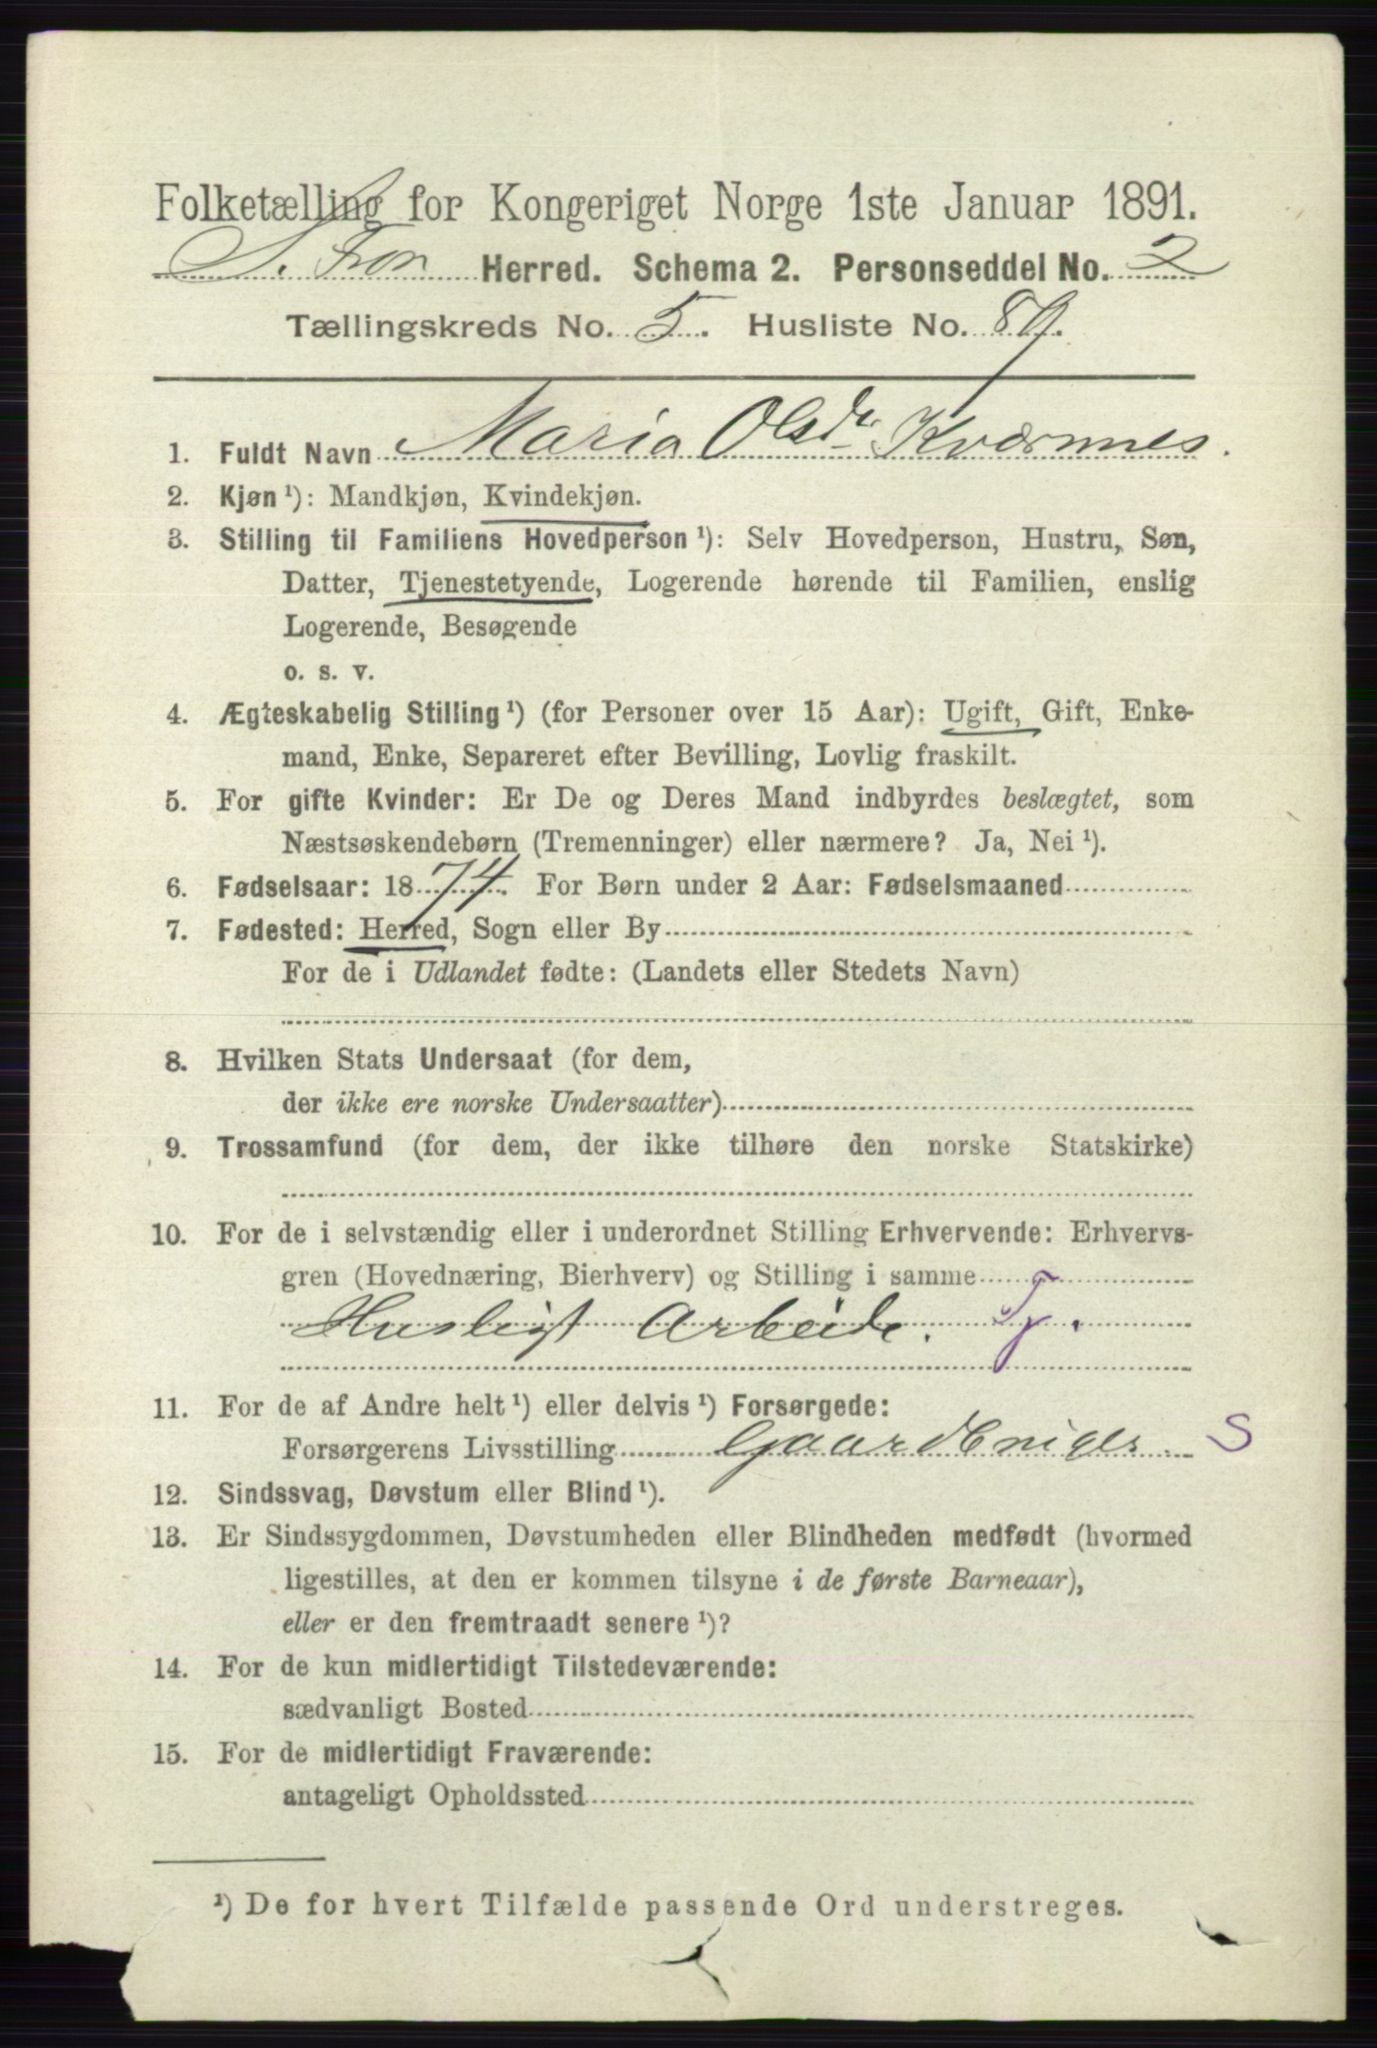 Folketælling for Kongeriget Norge 1ste Januar 1891.
S. Fron Herred. Schema 2. Personseddel No. 2
Tællingskreds No. 5. Husliste No. 89.
1. Fuldt Navn Maria Olsdr Kværnnes.
2. Kjøn ¹): Mandkjøn, Kvindekjøn.
3. Stilling til Familiens Hovedperson ¹): Selv Hovedperson, Hustru, Søn,
Datter, Tjenestetyende, Logerende hørende til Familien, enslig
Logerende, Besøgende
o. s. v.
4. Ægteskabelig Stilling ¹) (for Personer over 15 Aar): Ugift, Gift, Enke-
mand, Enke, Separeret efter Bevilling, Lovlig fraskilt.
5. For gifte Kvinder: Er De og Deres Mand indbyrdes beslægtet, som
Næstsøskendebørn (Tremenninger) eller nærmere? Ja, Nei ¹).
6. Fødselsaar: 1874. For Børn under 2 Aar: Fødselsmaaned
7. Fødested: Herred, Sogn eller By
For de i Udlandet fødte: (Landets eller Stedets Navn)
8. Hvilken Stats Undersaat (for dem,
der ikke ere norske Undersaatter)
9. Trossamfund (for dem, der ikke tilhøre den norske Statskirke)
10. For de i selvstændig eller i underordnet Stilling Erhvervende: Erhvervs-
gren (Hovednæring, Bierhverv) og Stilling i samme
Husligt Arbeide. Tj.
11. For de af Andre helt ¹) eller delvis ¹) Forsørgede:
Forsørgerens Livsstilling Gaardbruger. S
12. Sindssvag, Døvstum eller Blind ¹).
13. Er Sindssygdommen, Døvstumheden eller Blindheden medfødt (hvormed
ligestilles, at den er kommen tilsyne i de første Barneaar),
eller er den fremtraadt senere ¹)?
14. For de kun midlertidigt Tilstedeværende:
sædvanligt Bosted
15. For de midlertidigt Fraværende:
antageligt Opholdssted
¹) De for hvert Tilfælde passende Ord understreges.